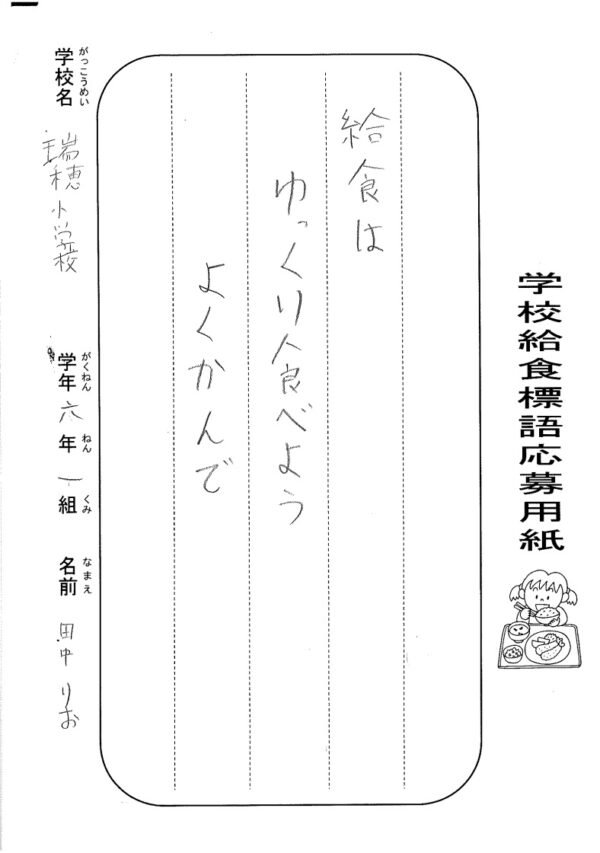 学校給食標語応募用紙
給食は
ゆっくり食べよう
よくかんで
がっこうめい
学校名 瑞穂小学校
がくねん ねん くみ
学年 六年 一組
なまえ
名前 田中りお